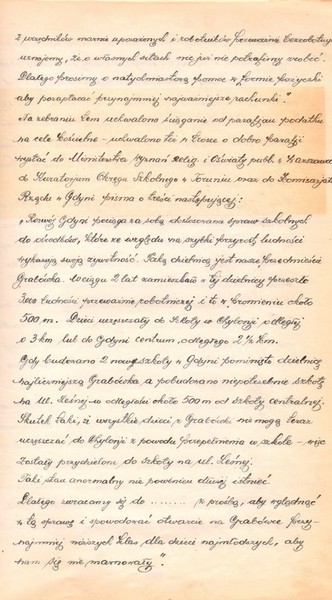 z urzędników marnie uposażonych i robotników przeważnie bezrobotnych
uznajemy, że o własnych siłach nic już nie potrafimy zrobić.
Dlatego prosimy o natychmiastową pomoc w formie pożyczki
aby popłacać przynajmniej najważniejsze rachunki."
Na zebraniu tem uchwalono ściąganie od parafjan podatku
na cele kościelne - uchwalono też w trosce o dobro parafji
wysłać do Ministerstwa Wyznań Relig. i Oświaty publ. w Warszawie
do Kuratorjum Okręgu Szkolnego w Toruniu oraz do Komisarjatu
Rządu w Gdyni pisma o treści następującej:
„Rozwój Gdyni pociąga za sobą dostosowanie spraw szkolnych
do ośrodków, które ze względu na szybki przyrost ludności
wykazują swoją żywotność. Taką dzielnicą jest nasze przedmieście
Grabówko. W ciągu 2 lat zamieszkało w tej dzielnicy przeszło
3000 ludności przeważnie robotniczej i to w promieniu około
500 m. Dzieci uczęszczały do szkoły w Chylonji odległej
o 3 km lub do Gdyni centrum, odległego 2½ km.
Gdy budowano 2 nowe szkoły w Gdyni pominięto dzielnicę
najliczniejszą Grabówko a pobudowano niepotrzebnie szkołę
na ul. Leśnej w odległości około 500 m od szkoły centralnej.
Skutek taki, iż wszystkie dzieci z Grabówki nie mogą teraz
uczęszczać do Chylonji z powodu przepełnienia w szkole - więc
zostały przydzielone do szkoły na ul. Leśnej.
Taki stan anormalny nie powinien dłużej istnieć.
Dlatego zwracamy się do ........ z prośbą, aby wglądnąć
w tą sprawę i spowodować otwarcie na Grabówce przy-
najmniej niższych klas dla dzieci najmłodszych, aby
nam się nie marnowały".